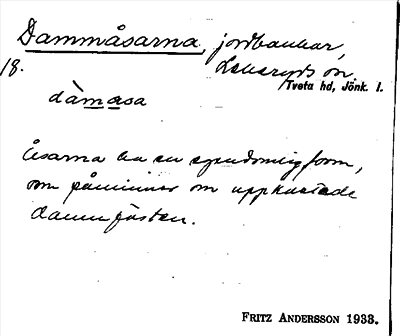 Dammåsarna, jordbankar,
18. Lekeryds sn,
Tveta hd, Jönk. l.
dàmasa
Åsarna ha en egendomlig form,
som påminner om uppkastade
dammfästen.
FRITZ ANDERSSON 1933.